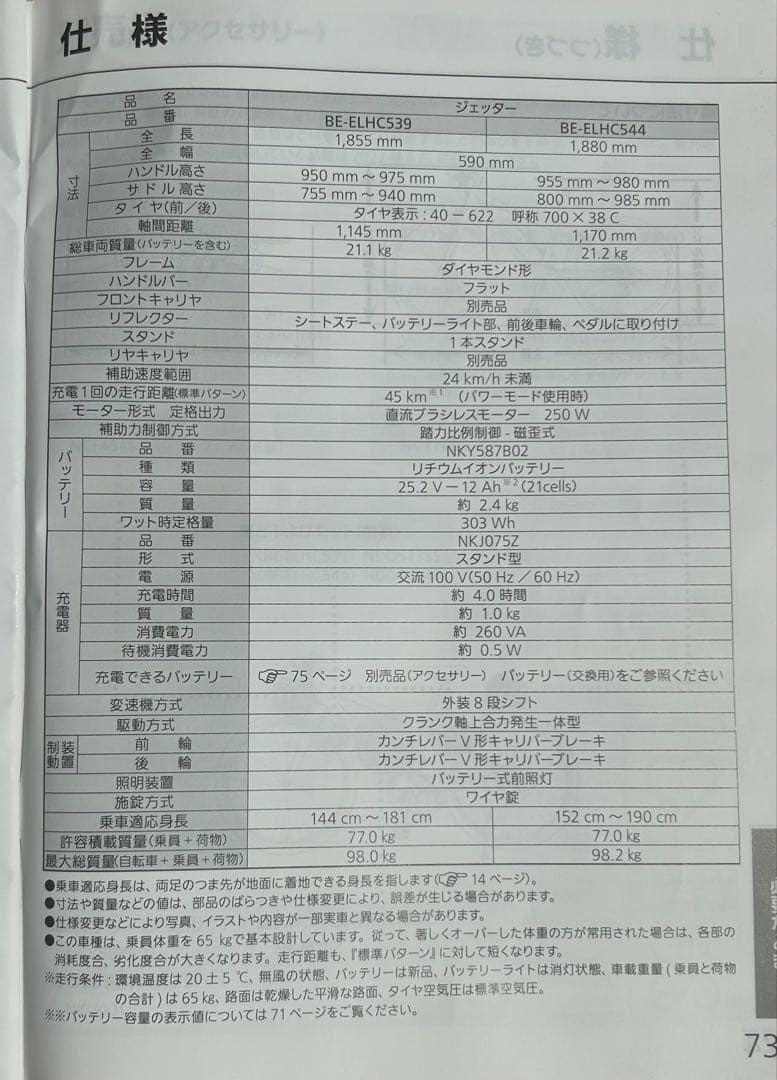 仕様
品名 ジェッター
品番 BE-ELHC539 BE-ELHC544
寸法
全長 1,855 mm 1,880 mm
全幅 590 mm
ハンドル高さ 950 mm 〜 975 mm 955 mm 〜 980 mm
サドル高さ 755 mm 〜 940 mm 800 mm 〜 985 mm
タイヤ(前／後) タイヤ表示 : 40 − 622 呼称 700 × 38 C
軸間距離 1,145 mm 1,170 mm
総車両質量(バッテリーを含む) 21.1 kg 21.2 kg
フレーム ダイヤモンド形
ハンドルバー フラット
フロントキャリヤ 別売品
リフレクター シートステー、バッテリーライト部、前後車輪、ペダルに取り付け
スタンド 1本スタンド
リヤキャリヤ 別売品
補助速度範囲 24 km/h 未満
充電1回の走行距離(標準パターン) 45 km※1 (パワーモード使用時)
モーター形式 定格出力 直流ブラシレスモーター 250 W
補助力制御方式 踏力比例制御 - 磁歪式
バッテリー
品番 NKY587B02
種類 リチウムイオンバッテリー
容量 25.2 V − 12 Ah※2 (21cells)
質量 約 2.4 kg
ワット時定格量 303 Wh
充電器
品番 NKJ075Z
形式 スタンド型
電源 交流 100 V(50 Hz ／ 60 Hz)
充電時間 約 4.0 時間
質量 約 1.0 kg
消費電力 約 260 VA
待機消費電力 約 0.5 W
充電できるバッテリー 75 ページ 別売品(アクセサリー) バッテリー(交換用)をご参照ください
変速機方式 外装 8 段シフト
駆動方式 クランク軸上合力発生一体型
制動装置
前輪 カンチレバー V 形キャリパーブレーキ
後輪 カンチレバー V 形キャリパーブレーキ
照明装置 バッテリー式前照灯
施錠方式 ワイヤ錠
乗車適応身長 144 cm 〜 181 cm 152 cm 〜 190 cm
許容積載質量(乗員 + 荷物) 77.0 kg 77.0 kg
最大総質量(自転車 + 乗員 + 荷物) 98.0 kg 98.2 kg
●乗車適応身長は、両足のつま先が地面に着地できる身長を指します( 14 ページ)。
●寸法や質量などの値は、部品のばらつきや仕様変更により、誤差が生じる場合があります。
●仕様変更などにより写真、イラストや内容が一部実車と異なる場合があります。
●この車種は、乗員体重を 65 kgで基本設計しています。従って、著しくオーバーした体重の方が常用された場合は、各部の
消耗度合、劣化度合が大きくなります。走行距離も、『標準パターン』に対して短くなります。
※走行条件 : 環境温度は 20 ± 5 ℃、無風の状態、バッテリーは新品、バッテリーライトは消灯状態、車載重量 ( 乗員と荷物
の合計 ) は 65 kg、路面は乾燥した平滑な路面、タイヤ空気圧は標準空気圧。
※※バッテリー容量の表示値については 71 ページをご覧ください。
73